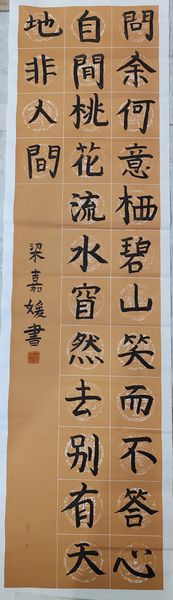 問余何意栖碧山笑而不答心
自間桃花流水窅然去别有天
地非人間
梁嘉媛書